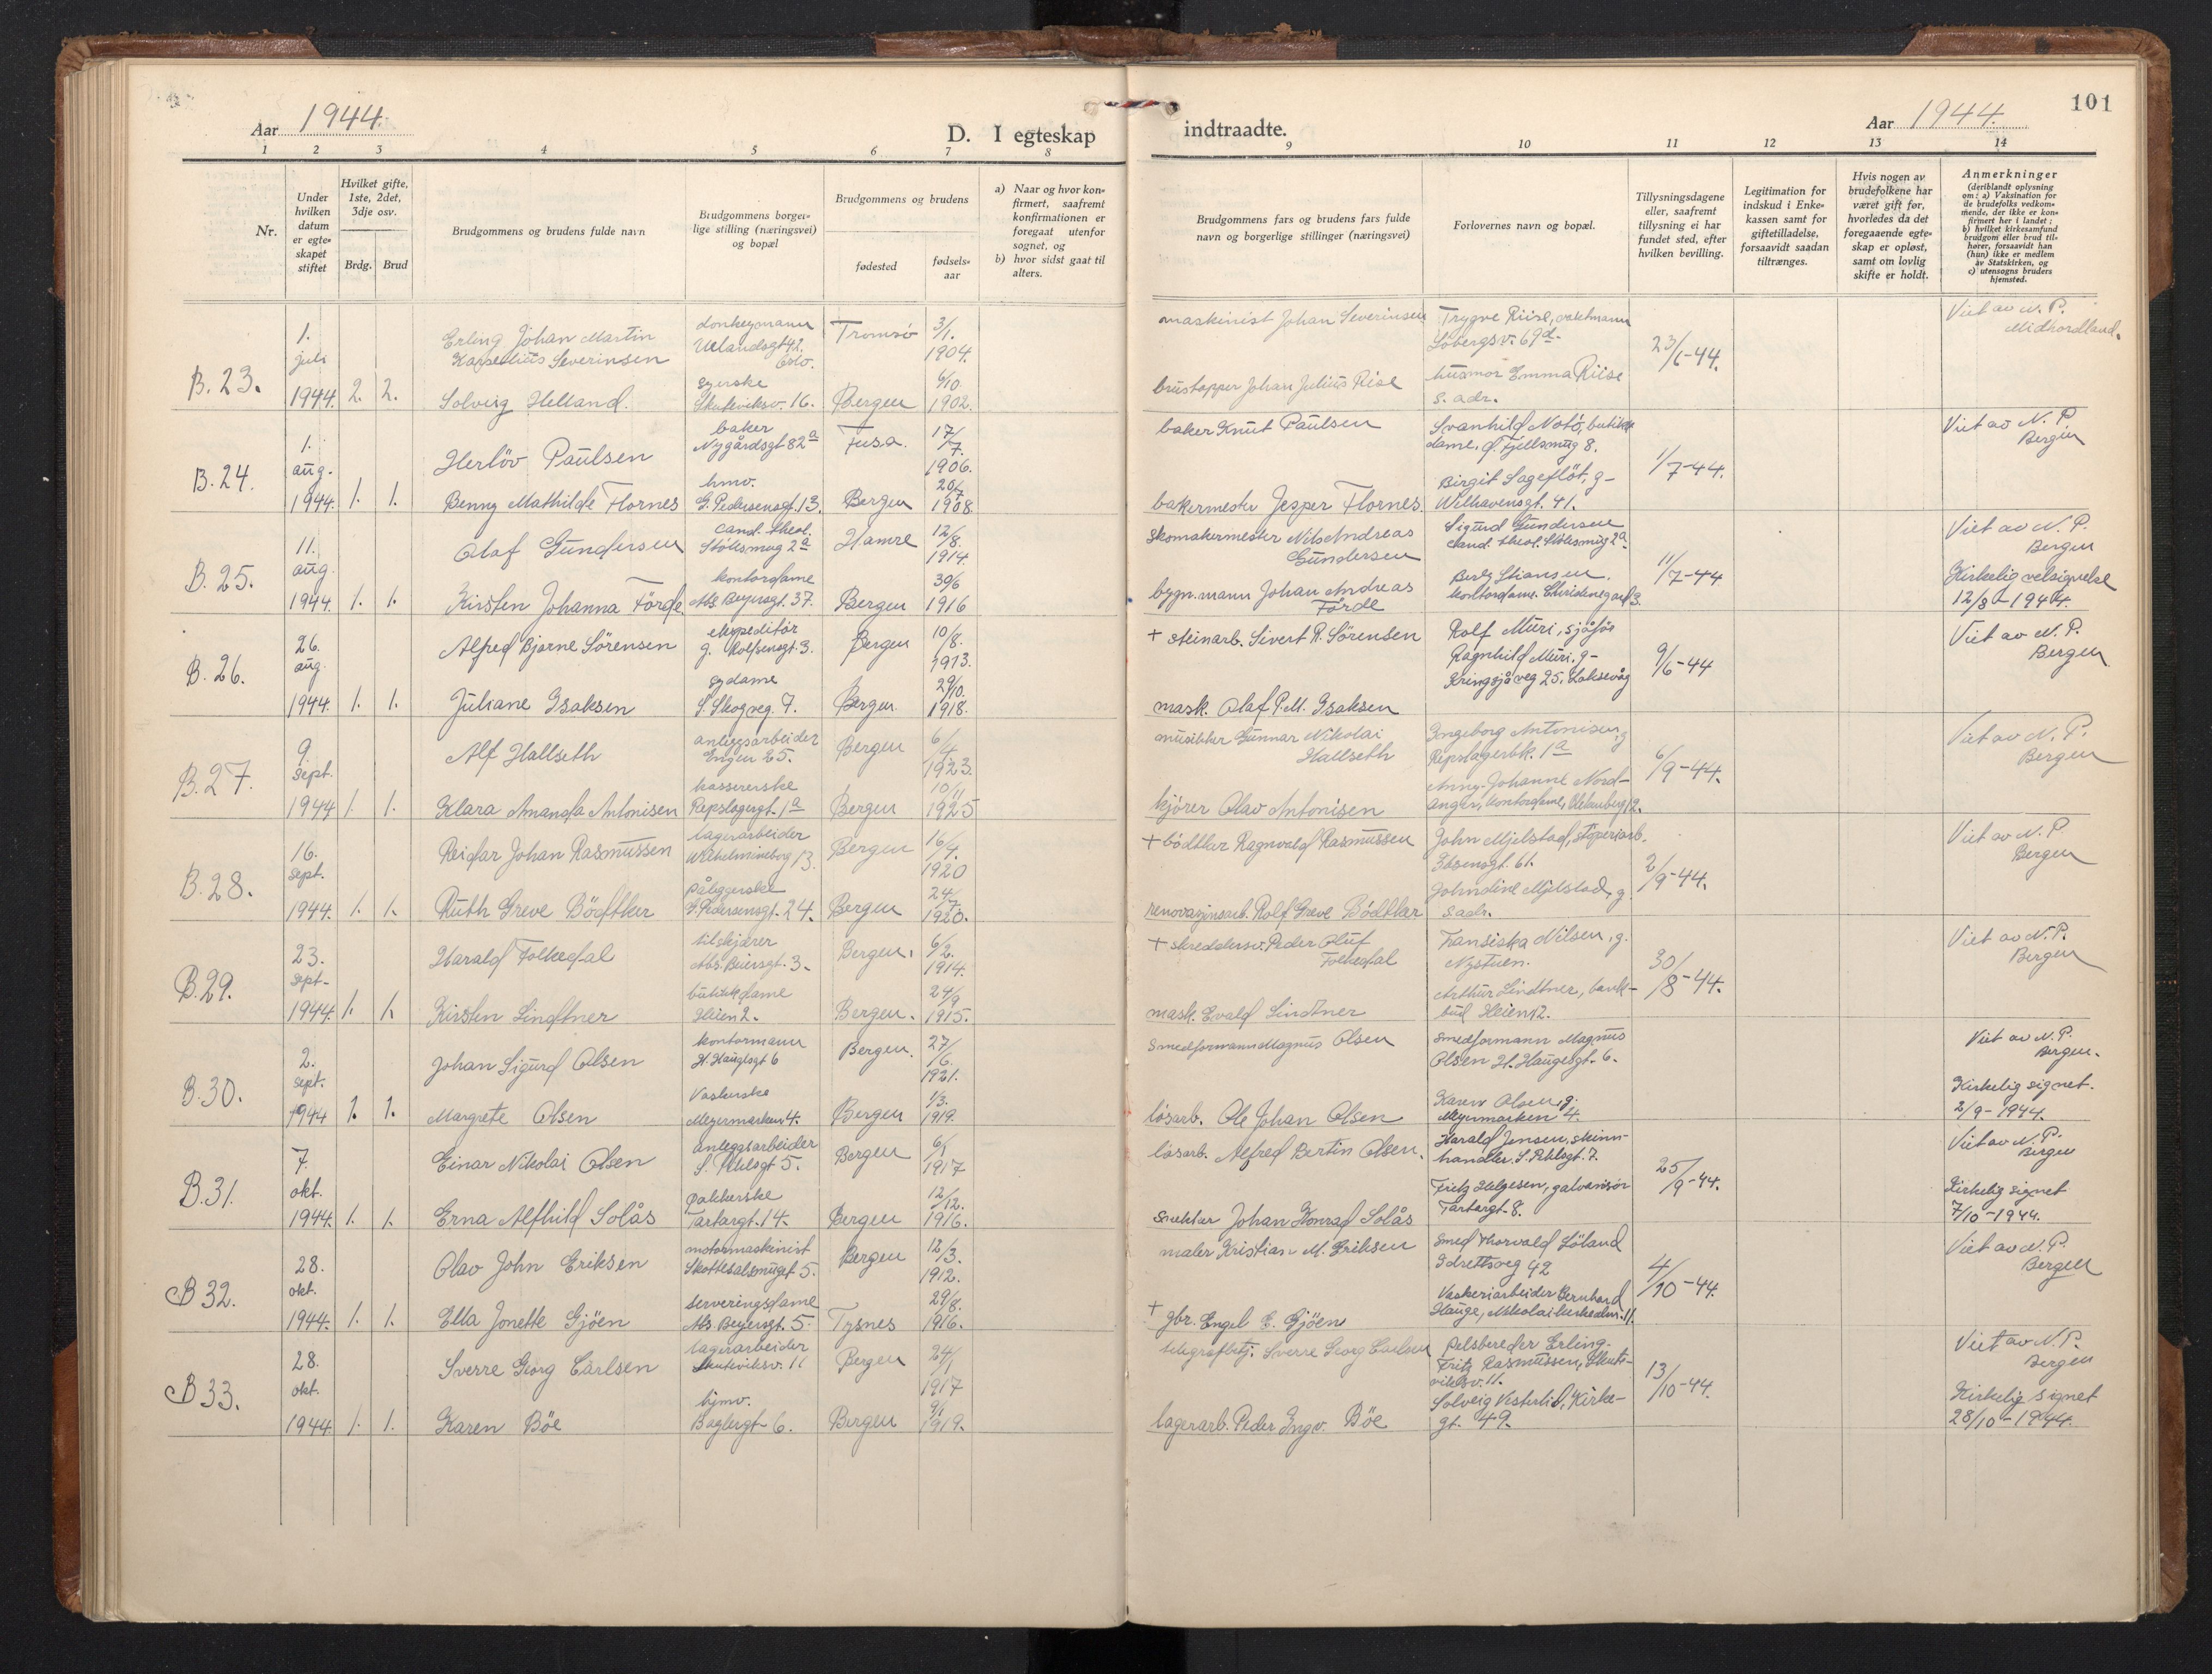 101
Aar 1944.
D. I egteskap indtraadte.
Aar 1944.
1 2 3 4 5 6 7 8 9 10 11 12 13 14
Nr.
Under hvilken datum er egte-skapet stiftet
Hvilket gifte, 1ste, 2det, 3dje osv.
Brdg. Brud
Brudgommens og brudens fulde navn
Brudgommens borger-lige stilling (næringsvei) og bopæl
Brudgommens og brudens
fødested
fødsels-aar
a) Naar og hvor kon-firmert, saafremt konfirmationen er foregaat utenfor sognet, og
b) hvor sidst gaat til alters.
Brudgommens fars og brudens fars fulde navn og borgerlige stillinger (næringsvei)
Forlovernes navn og bopæl.
Tillysningsdagene eller, saafremt tillysning ei har fundet sted, efter hvilken bevilling.
Legitimation for indskud i Enke-kassen samt for giftetilladelse, forsaavidt saadan tiltrænges.
Hvis nogen av brudefolkene har været gift før, hvorledes da det foregaaende egte-skap er opløst, samt om lovlig skifte er holdt.
Anmerkninger
(deriblandt oplysning om: a) Vaksination for de brudefolks vedkom-mende, der ikke er kon-firmert her i landet; b) hvilket kirkesamfund brudgom eller brud til-hører, forsaavidt han (hun) ikke er medlem av Statskirken, og c) utensogns bruders hjemsted.
B. 23. 1. juli 1944. 2. 2.
Erling Johan Martin Severinsen
donkeymann Uelandsgt 42. Oslo. Tromsö 3/1. 1904.
Solveig Helland.
syerske Skuteviksv. 16. Bergen 6/10 1902.
maskinist Johan Severinsen
Johan Julius Riise
Trygve Riise,
69d.
husmor Emma Riise
s. adr.
23/6-44.
Viet av N. P. Midhordland.
B. 24. 1. aug. 1944. 1. 1.
Herlöv Paulsen
baker Nygårdsgt 82a Fusa. 17/7. 1906.
Benny Mathilde Flornes
hmv. G. Pedersensgt. 13. Bergen 20/7 1908.
baker Knut Paulsen
bakermester Jesper Flornes
Svanhild Notö, butikk-
dame,
Birgit Sageflöt, g-
Welhavensgt. 41.
1/7-44.
Viet av N. P. Bergen
B. 25. 11. aug. 1944. 1. 1.
Olaf Gundersen
cand. theol. Stölesmug 2a Hamre 12/8. 1914.
Kirsten Johanna Förde
kontordame Abs. Beyersgt. 37. Bergen 30/6 1916
skomakermester Nils Andreas Gundersen
bygn.mann Johan Andreas Förde
Sigurd Gundersen
cand. theol. Stölesmug 2a.
kontordame. Christinegård 3.
11/7-44
Viet av N. P. Bergen
Kirkelig velsignelse
12/8-1944.
B. 26. 26. aug. 1944. 1. 1.
Alfred Bjarne Sörensen
ekspeditör g. Rolfsensgt. 3. Bergen 10/8. 1913.
Juliane Isaksen
sydame S. Skogveg 7. Bergen 29/10. 1918.
+ steinarb. Sivert R. Sörensen
mask. Olaf P.M. Isaksen
Rolf Muri, sjåför
Ragnhild Muri. g-
Kringsjåveg 25. Laksevåg
9/6-44
Viet av N. P. Bergen
B. 27. 9. sept. 1944 1. 1.
Alf Hallseth
anleggsarbeider Engen 25. Bergen 6/4 1923.
Klara Amanda Antonisen
kassererske Repslagergt. 1a Bergen 10/11 1925
musikker Gunnar Nikolai Hallseth
kjörer Olav Antonisen
Ingeborg Antonisen, g
Repslagerbk. 1a
Anny Johanne Nord-
anger, kontordame,
6/9-44.
Viet av N. P. Bergen
B. 28. 16. sept. 1944. 1. 1.
Reidar Johan Rasmussen
lagerarbeider Wilhelmineborg 13. Bergen 16/4. 1920
Ruth Greve Bödtker
påleggerske G. Pedersensgt. 24. Bergen 24/7. 1920.
+ bödtker Ragnvald Rasmussen
renovasjonsarb. Rolf Greve Bödtker
John Mjelstad, stöperiarb.
Ibsensgt. 61.
Johndine Mjelstad, g
s.adr.
2/9-44.
Viet av N. P. Bergen
B. 29. 23. sept- 1944. 1. 1.
Harald Folkedal
tilskjærer Abs. Beiersgt. 3. Bergen. 6/2. 1914.
Kirsten Lindtner
butikkdame Heien 2. Bergen. 24/9 1915.
+ skreddersv. Peder Oluf Folkedal
mask. Evald Lindtner
Fansiska Nilsen, g.
Nystuen.
Arthur Lindtner, bank-
bud Heien 12.
30/8-44.
Viet av N. P. Bergen
B. 30. 2. sept. 1944 1. 1.
Johan Sigurd Olsen
kontormann H. Haugesgt 6 Bergen. 27/6. 1921.
Margrete Olsen
Vaskerske Meyermarken 4. Bergen 1/3. 1919.
Smedformann Magnus Olsen
lösarb. Ole Johan Olsen
Smedformann Magnus
Olsen H. Haugesgt. 6.
Karen Olsen, g.
Meyermarken 4.
Viet av N. P. Bergen.
Kirkelig signet.
2/9-1944.
B. 31. 7. okt. 1944. 1. 1.
Einar Nikolai Olsen
anleggsarbeider S. Pihlsgt 5. Bergen 6/1 1917
Erna Alfhild Solås
pakkerske Tartargt. 14. Bergen 12/12. 1916.
lösarb. Alfred Bertin Olsen.
snekker Johan Konrad Solås
Harald Jensen, skinn-
handler. S. Pihlsgt. 7.
Fritz Helgesen, galvanisör
Tartargt. 8.
25/9-44.
Viet av N. P. Bergen
Kirkelig signet
7/10-1944.
B 32. 28. okt. 1944. 1. 1.
Olav John Eriksen
motormaskinist Skottesalsmuget 5. Bergen 12/3. 1912.
Ella Jonette Gjöen
serveringsdame Abs. Beyersgt. 5. Tysnes 29/8. 1916.
maler Kristian M. Eriksen
+ gbr. Engel E. Gjöen
Smed Thorvald Löland
Idrettsveg 42
Vaskeriarbeider Bernhard
Hauge, Nikolaikirkealm. 11.
4/10-44.
Viet av N. P. Bergen
B 33. 28. okt. 1944. 1. 1.
Sverre Georg Carlsen
lagerarbeider Skuteviksv. 11 Bergen 24/1 1917
Karen Böe
hjmv. Baglergt 6. Bergen 9/1 1919.
telegrafbetj. Sverre Georg Carlsen
lagerarb. Peder Ingv. Böe
Pelsbereder Erling
Fritz Rasmussen, Skute-
viksv. 11.
Solveig Vesterlid, Kirke-
gt. 49.
13/10-44.
Viet av N. P. Bergen
Kirkelig signet
28/10-1944.